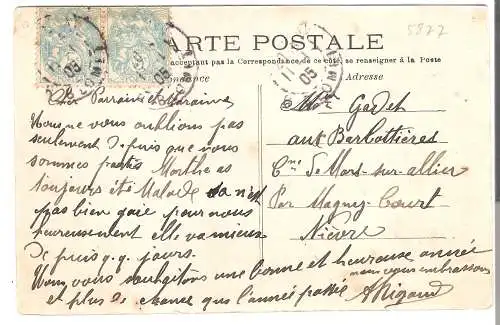 5822
CARTE POSTALE
acceptant pas la Correspondance, de ce côté, se renseigner à la Poste
Correspondance
Adresse
05
Cher Parrain et Marraine
Nous ne vous oublions pas
seulement depuis que nous
sommes partis Marthe as
toujours été Malade sa n'est
pas bien gaie pour nous
heureusement elle va mieux
depuis q.q. jours.
Nous vous souhaitons une bonne et heureuse année
et plus de chance que l'année passée
nous vous embrassons
A Rigaud
Gadet
aux Barbottières
Cne de Mars-sur-allier
Par Magny-Court
Nièvre